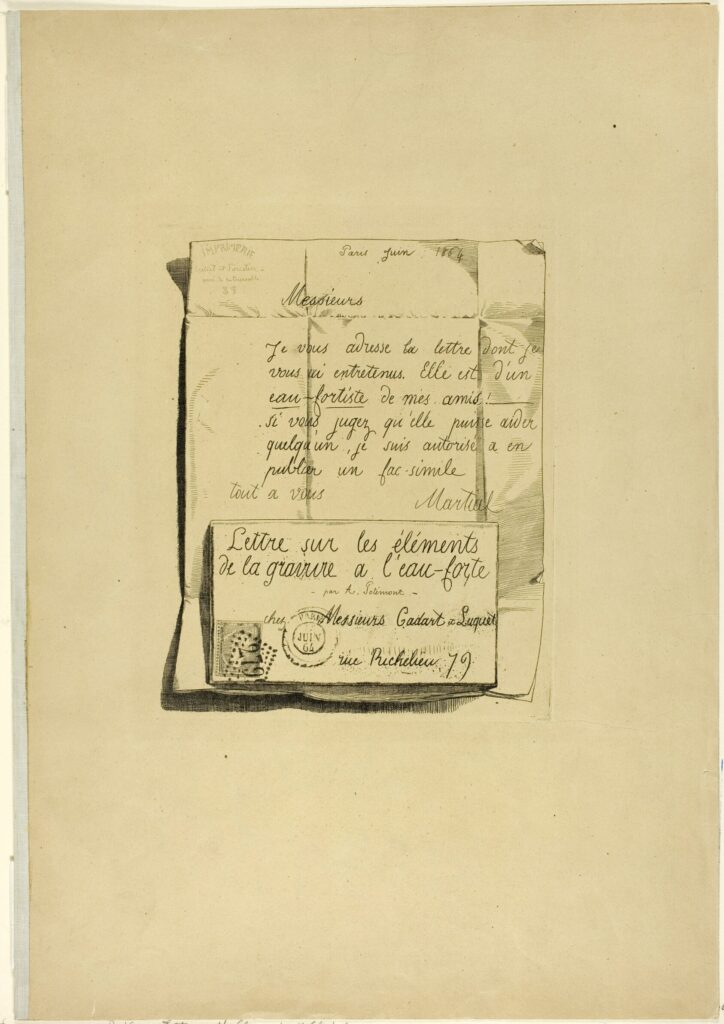 IMPRIMERIE
Paris Juin 1864
88
Messieurs
Je vous adresse la lettre dont je
vous ai entretenus. Elle est d'un
eau-fortiste de mes amis!
Si vous jugez qu'elle puisse aider
quelqu'un, je suis autorisé a en
publier un fac-simile
tout a vous
Martial
Lettre sur les éléments
de la gravure a l'eau-forte
- par A. Potémont -
chez Messieurs Cadart & Luquet
PARIS
JUIN
64
rue Richelieu, 79